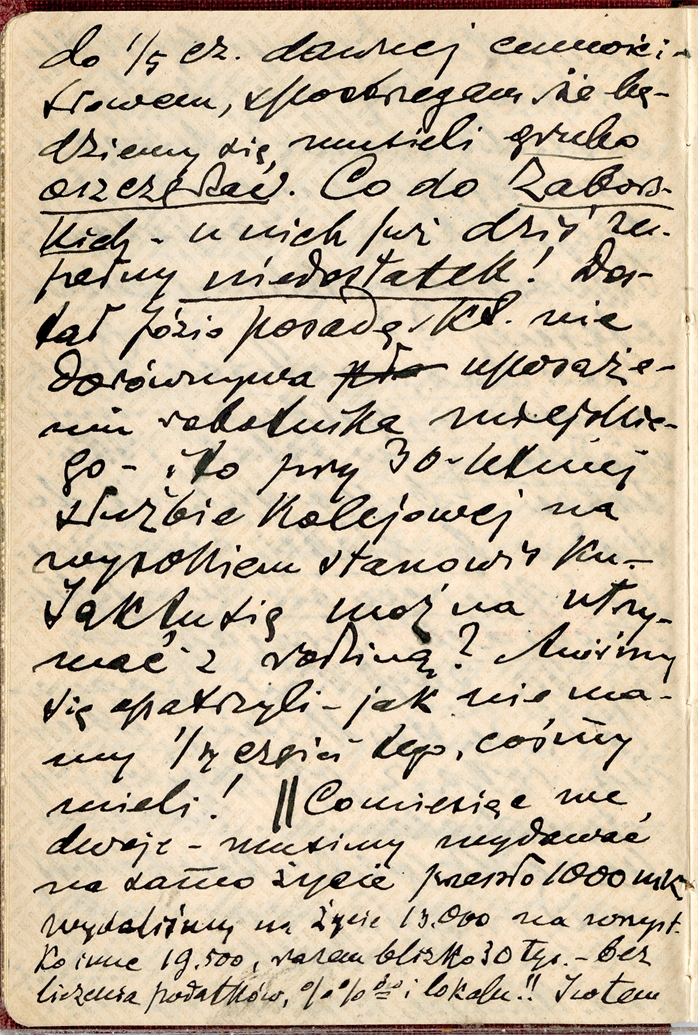 do 1/5 cz. dawnej
słowem, spostrzegam że bę-
dziemy się musieli grubo
oszczędzać. Co do Zabors-
kich - u nich już dziś zu-
pełny niedostatek! Dos-
tał Józio posadę, Kł. nie
dorównywa uposaże-
niu robotnika miejskie-
go - i to przy 30-letniej
służbie kolejowej na
wysokiem stanowisku. -
Jak tu się można utrzy-
mać z rodziną? Aniśmy
się opatrzyli - jak nie ma-
my 1/4 części tego, cośmy
mieli! || Comiesiąc we
dwoje - musimy wydawać
na samo życie przeszło 1000 mk
wydaliśmy na życie 13.000 na wszyst-
ko inne 19.500, razem blizko 30 tys. - bez
liczenia podatków, %% i lokalu!! I w tem